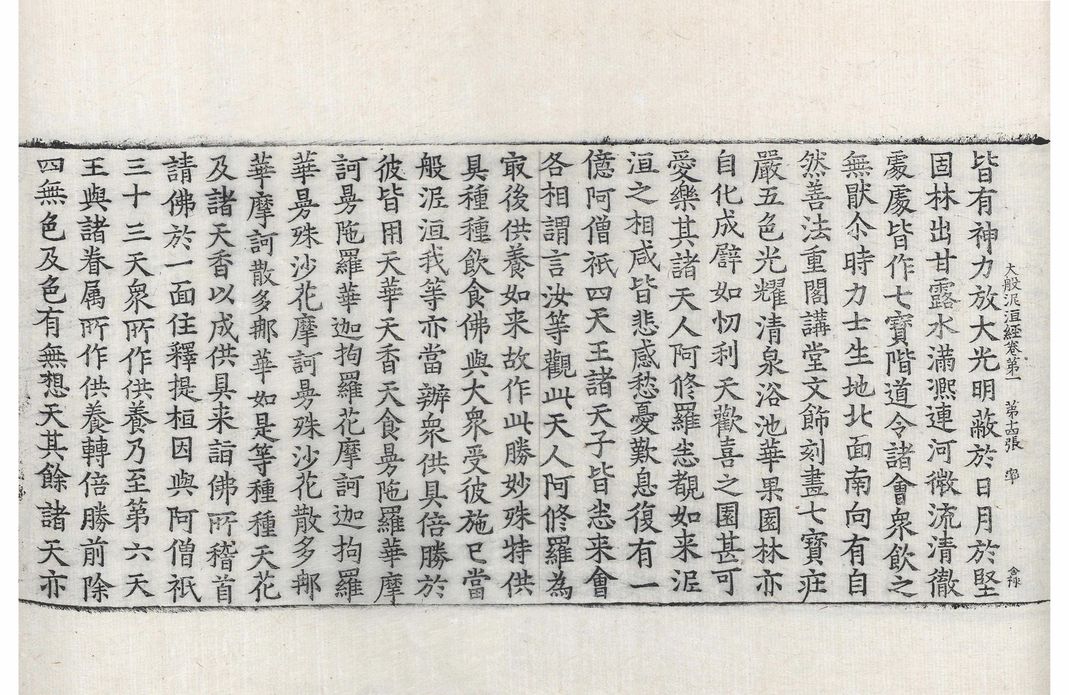 大般泥洹経卷第一　第十四張　率　金祿
皆有神力放大光明蔽於日月於堅
固林出甘露水滿凞連河微流清徹
處處皆作七寶階道令諸會衆飲之
無猒尒時力士生地北面南向有自
然善法重閣講堂文飾刻畫七寶莊
嚴五色光耀清泉浴池華果園林亦
自化成譬如忉利天歡喜之園甚可
愛樂其諸天人阿修羅悉覩如来泥
洹之相咸皆悲感愁憂歎息復有一
億阿僧祇四天王諸天子皆悉来會
各相謂言汝等觀此天人阿修羅為
㝡後供養如来故作此勝妙殊特供
具種種飲食佛與大衆受彼施已當
般泥洹我等亦當辦衆供具倍勝於
彼皆用天華天香天食曼陁羅華摩
訶曼陁羅華迦拘羅花摩訶迦拘羅
華曼殊沙花摩訶曼殊沙花散多郍
華摩訶散多郍華如是等種種天花
及諸天香以成供具来詣佛所稽首
請佛於一面住釋提桓因與阿僧祇
三十三天衆所作供養乃至第六天
王與諸眷属所作供養轉倍勝前除
四無色及色有無想天其餘諸天亦